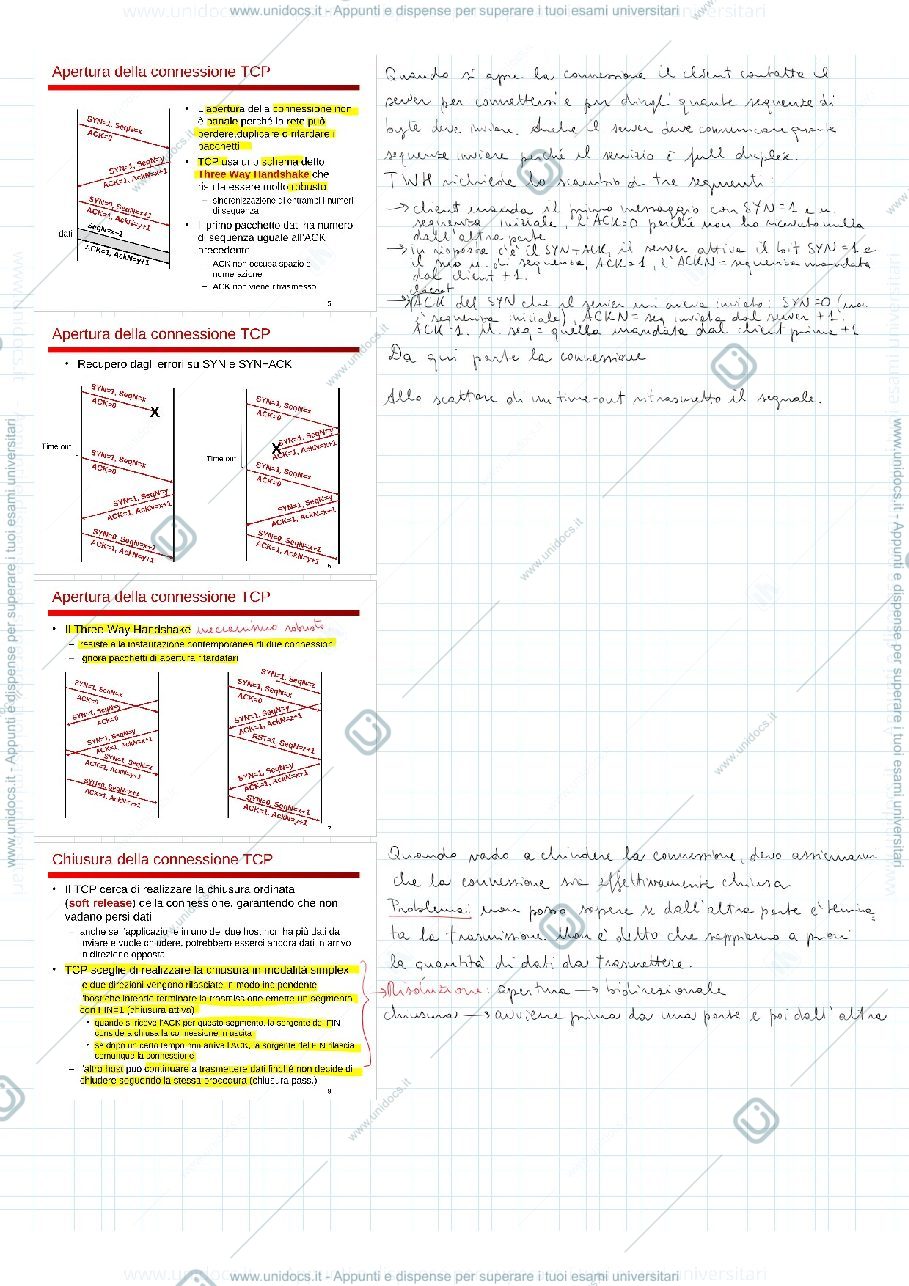 www.unidocs.it - Appunti e dispense per superare i tuoi esami universitari
Apertura della connessione TCP
SYN=1, SeqN=x
ACK=0
SYN=1, SeqN=y
ACK=1, AckN=x+1
ACK=1, AckN=y+1
dati
SeqN=x+1
ACK=1, AckN=y+1
apertura della connessione non
è banale perché la rete può
perdere, duplicare o ritardare i
pacchetti
TCP usa uno schema detto
Three Way Handshake che
risulta essere molto robusto
– sincronizzazione di entrambi i numeri
di sequenza
• Il primo pacchetto dati ha numero
di sequenza uguale all'ACK
precedente
– ACK non occupa spazio di
numerazione
– ACK non viene ritrasmesso
5
Quando si apre la connessione il client contatta il
server per connettersi e per dirgli quante sequenze di
byte deve inviare. Anche il server deve comunicare quante
sequenze inviare perché il servizio è full duplex.
TWH richiede lo scambio di tre segmenti:
→ client manda il primo messaggio con SYN=1 e
sequenza iniziale, l'ACK=0 perché non ho ricevuto nulla
dall'altra parte
→ in risposta c'è il SYN+ACK, il server attiva il bit SYN=1 e
il suo n. di sequenza, ACK=1, l'ACKN = sequenza mandata
dal client +1.
→ ACK del SYN che il server mi aveva inviato: SYN=0
sequenza iniziale), ACKN = seq inviata dal server +1.
ACK=1, il seq = quella mandata dal client prima +1
Da qui parte la connessione
Allo scattare di un time-out ritrasmetto il segnale.
Apertura della connessione TCP
• Recupero dagli errori su SYN e SYN+ACK
SYN=1, SeqN=x
ACK=0
X
Time out
SYN=1, SeqN=x
ACK=0
SYN=1, SeqN=y
ACK=1, AckN=x+1
SYN=0, SeqN=x+1
ACK=1, AckN=y+1
SYN=1, SeqN=x
ACK=0
SYN=1, SeqN=y
X
ACK=1, AckN=x+1
Time out
SYN=1, SeqN=x
ACK=0
SYN=1, SeqN=y
ACK=1, AckN=x+1
SYN=0, SeqN=x+1
ACK=1, AckN=y+1
6
Apertura della connessione TCP
• Il Three Way Handshake meccanismo robusto
– resiste a la instaurazione contemporanea di due connessioni
– ignora pacchetti di apertura ritardatari
SYN=1, SeqN=x
ACK=0
SYN=1, SeqN=y
ACK=0
SYN=1, SeqN=y
ACK=1, AckN=x+1
SYN=1, SeqN=x
ACK=1, AckN=y+1
SYN=0, SeqN=x+1
ACK=1, AckN=y+1
SYN=1, SeqN=z
SYN=1, SeqN=x
ACK=0
SYN=1, SeqN=y
ACK=1, AckN=z+1
RST=1, SeqN=z+1
SYN=1, SeqN=y
ACK=1, AckN=x+1
SYN=0, SeqN=x+1
ACK=1, AckN=y+1
7
Chiusura della connessione TCP
• Il TCP cerca di realizzare la chiusura ordinata
(soft release) della connessione, garantendo che non
vadano persi dati
– anche se l'applicazione in uno dei due host non ha più dati da
inviare e vuole chiudere, potrebbero esserci ancora dati in arrivo
in direzione opposta
• TCP sceglie di realizzare la chiusura in modalità simplex
– le due direzioni vengono rilasciate in modo indipendente
– l'host che intende terminare la trasmissione emette un segmento
con FIN=1 (chiusura attiva)
• quando si riceve l'ACK per questo segmento, la sorgente del FIN
considera chiusa la connessione in uscita
• se dopo un certo tempo non arriva l'ACK, la sorgente del FIN rilascia
comunque la connessione
– l'altro host può continuare a trasmettere dati finché non decide di
chiudere seguendo la stessa procedura (chiusura pass.)
9
Quando vado a chiudere la connessione, devo assicurarmi
che la connessione sia effettivamente chiusa
Problema: non posso sapere se dall'altra parte è termina
ta la trasmissione. Non è detto che sappiamo a priori
la quantità di dati da trasmettere.
→ Risoluzione: apertura → bidirezionale
chiusura → avviene prima da una parte e poi dall'altra
www.unidocs.it - Appunti e dispense per superare i tuoi esami universitari